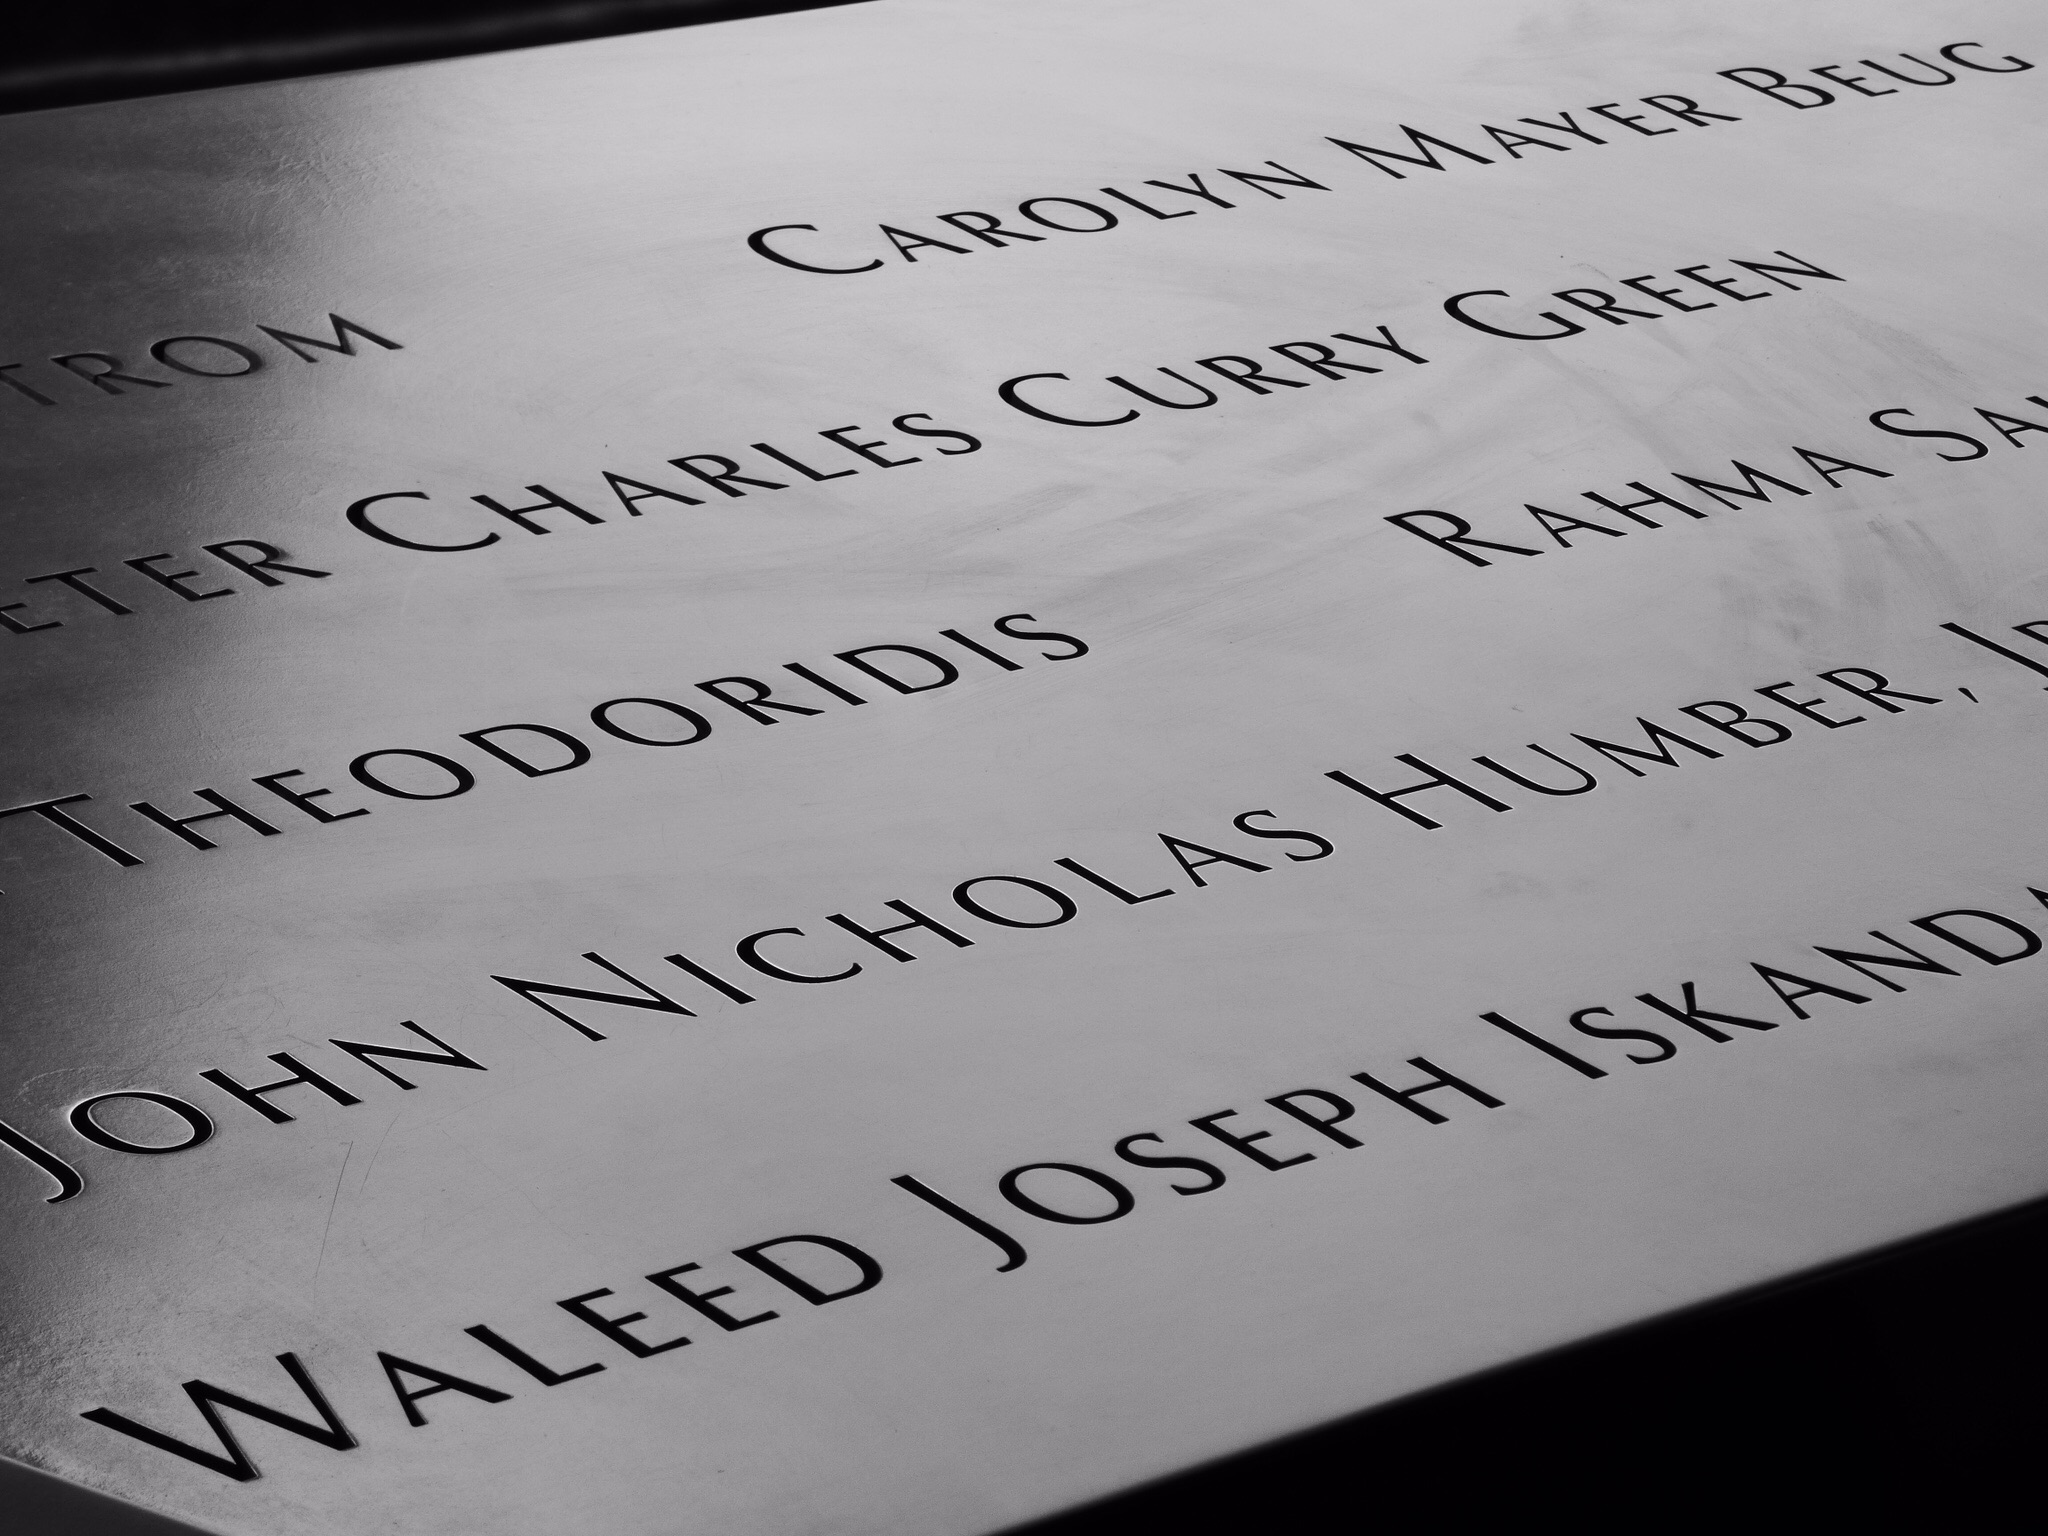 Carolyn Mayer Beug
Charles Curry Green
Theodoridis Rahma
John Nicholas Humber,
Waleed Joseph